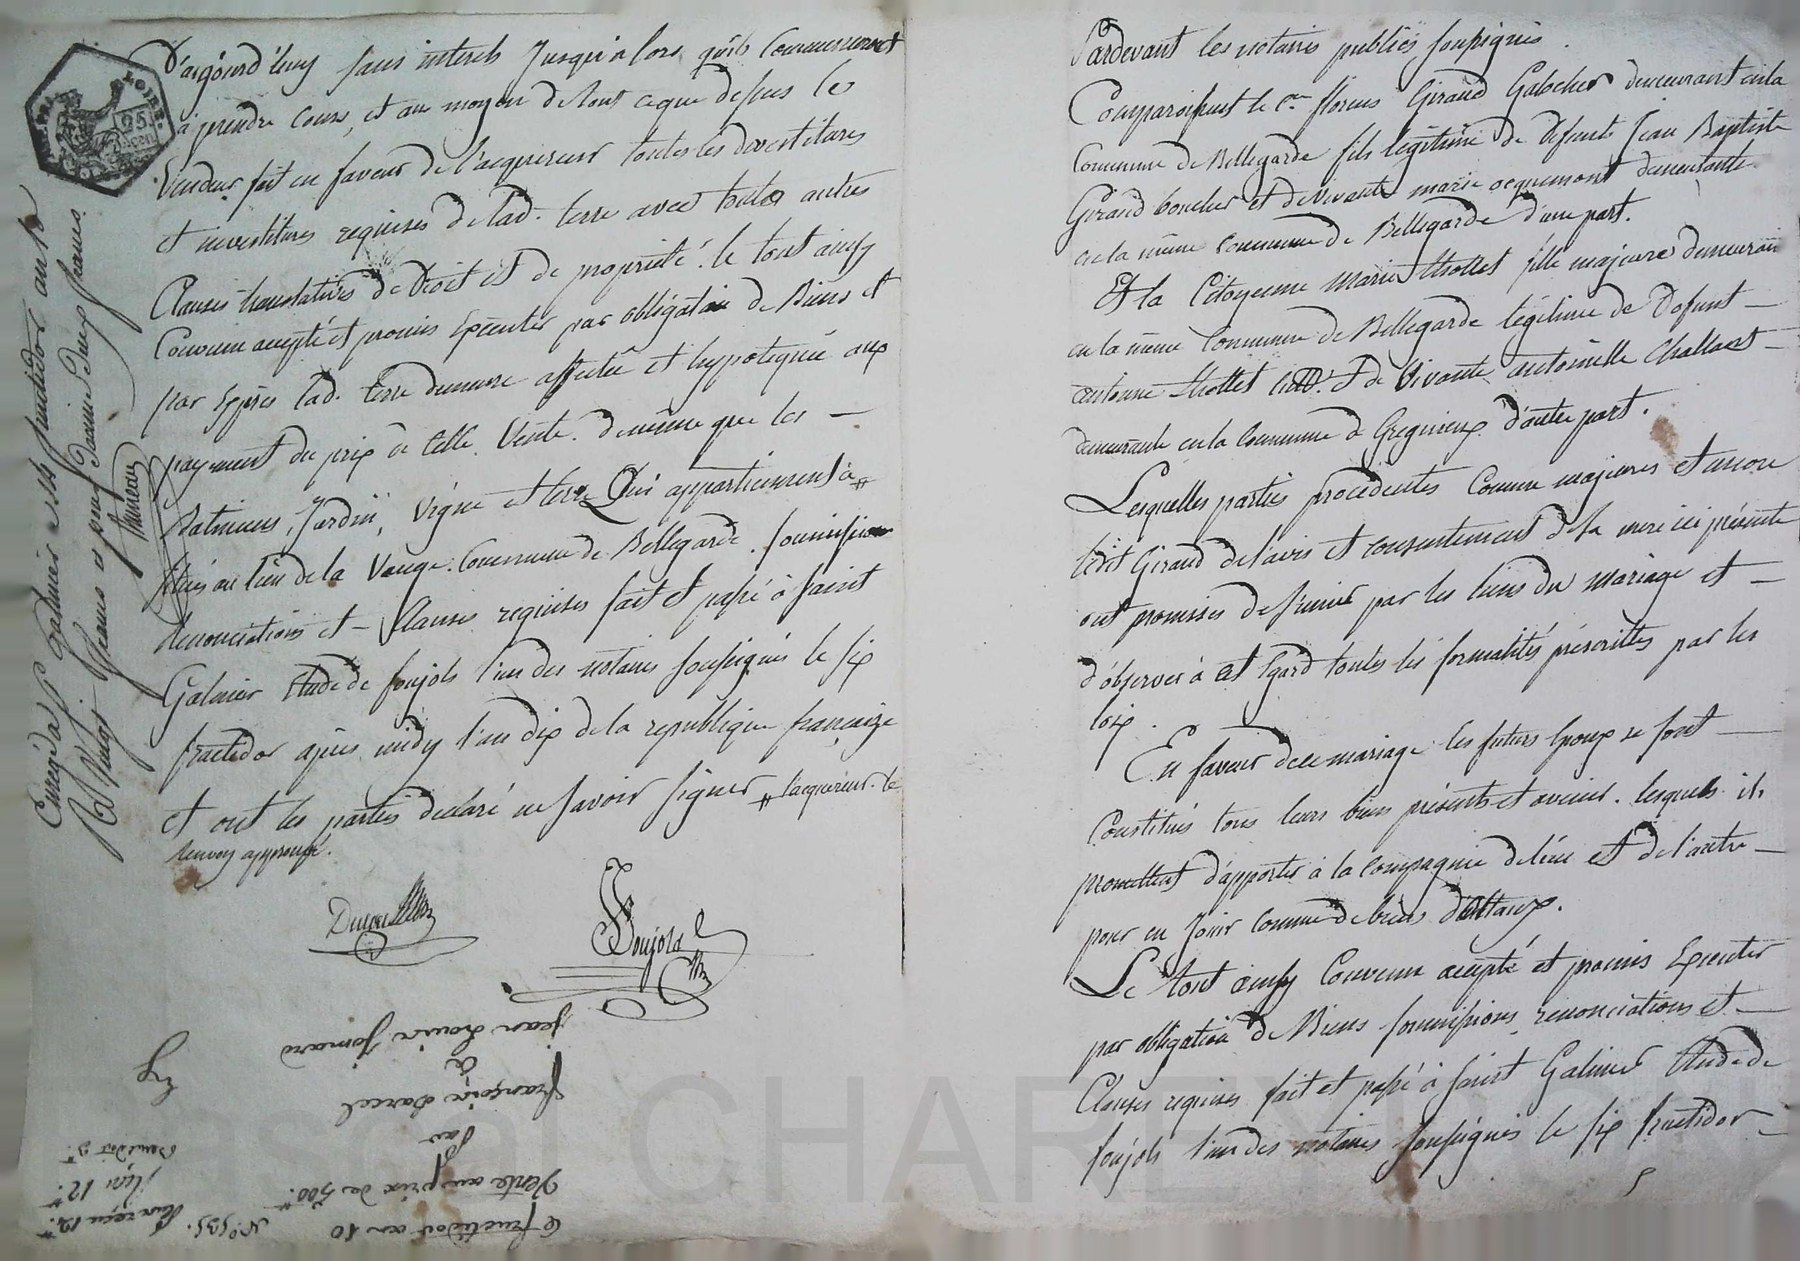 d'aujourd'huy sans interets jusqu'a lors qu'ils commenceront
a prendre cours, et au moyen de tout ce que dessus le
vendeur fait en faveur de l'acquereur toutes les devestitures
et investitures requises de lad. terre avec toutes autres
clauses translatives de droit et de propriété. le tout ainsy
convenu accepté et promis executer par obligation de Biens et
par exprès lad. terre demeure affectée et hypotequée aux
payement du prix de celle vente. de même que les —
Batimens, jardin, vigne et terre qui appartiennent à #
situés au lieu de la Vauge. Commune de Bellegarde. soumissions
renonciations et – clauses requises fait et passé à Saint
Galmier étude de foujols l'un des notaires soussignés le six
fructidor après midy l'an dix de la republique française
et ont les parties declaré ne savoir signer # l'acquereur. le
renvoy approuvé.
foujols
Nre
jean Louis jomard
à
françois
par
Vente au prix de 500.tt
6 fructidor an 10
N.º 535.
12.tt
12.tt
Enreg. à St Galmier
Pardevant les notaires publics soussignés.
Comparoissent le c.en florens Giraud Galocher demeurant en la
Commune de Bellegarde fils légitime de défunt Jean Baptiste
Giraud boucher et de vivante marie acquemont demeurante
en la même commune de Bellegarde d'une part.
Et la Citoyenne Marie thollet fille majeure demeurant
en la même Commune de Bellegarde légitime de Defunt —
antoinne thollet et de Vivante antoinette Challaet —
demeurante en la commune de Gregnieux d'autre part.
Lesquelles parties procedentes comme majeures et encore
ledit Giraud de l'avis et consentement de sa mere ici présente
ont promises de s'unir par les liens du mariage et —
d'observer à cet Egard toutes les formalités préscrittes par les
loix.
En faveur de ce mariage les futurs Epoux se sont —
Constitués tous leurs biens présents et avenir. lesquels ils
promettent d'apporter à la compagnie de l'un et de l'autre —
pour en jouir comme de biens dottaux.
Le tout ainsy convenu accepté et promis Executer
par obligation de Biens soumissions, renonciations et —
Clauses requises fait et passé à Saint Galmier étude de
foujols l'un des notaires soussignés le six fructidor —
CHAR